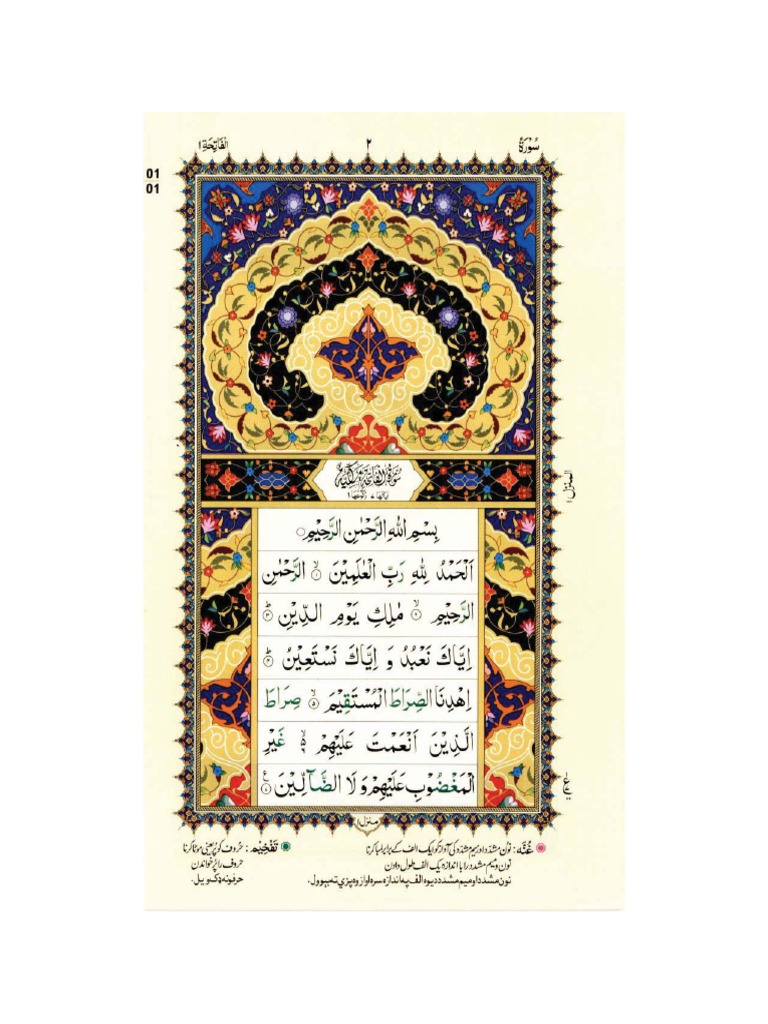 سُوْرَةُ ٢ اَلْفَاتِحَةِ ١
01
01
سُوْرَةُ الْفَاتِحَةِ مَكِّيَّةٌ
اٰیَاتُهَا ٧ رُكُوْعُهَا ١
بِسْمِ اللّٰهِ الرَّحْمٰنِ الرَّحِیْمِ ○
اَلْحَمْدُ لِلّٰهِ رَبِّ الْعٰلَمِیْنَ ۙ﴿١﴾ الرَّحْمٰنِ
الرَّحِیْمِ ۙ﴿٢﴾ مٰلِكِ یَوْمِ الدِّیْنِ ؕ﴿٣﴾
اِیَّاكَ نَعْبُدُ وَ اِیَّاكَ نَسْتَعِیْنُ ؕ﴿٤﴾
اِهْدِنَا الصِّرَاطَ الْمُسْتَقِیْمَ ۙ﴿٥﴾ صِرَاطَ
الَّذِیْنَ اَنْعَمْتَ عَلَیْهِمْ ۙ۬﴿٦﴾ غَیْرِ
الْمَغْضُوْبِ عَلَیْهِمْ وَ لَا الضَّآلِّیْنَ ﴿٧﴾
المنزل ١
ع
منزل ١
غُنَّه : نون مشدد اور میم مشدد کی آواز کو ایک الف کے برابر لمبا کرنا
نون و میم مشدد را با اندازه یک الف طول دادن
نون مشدد او میم مشدد دیوه الف په اندازه سره اواز وه پزې ته بېوول.
تَفْخِیْم : حروف کو پُر یعنی موٹا کرنا
حروف را پُر خواندن
حرفونه ډک ویل.